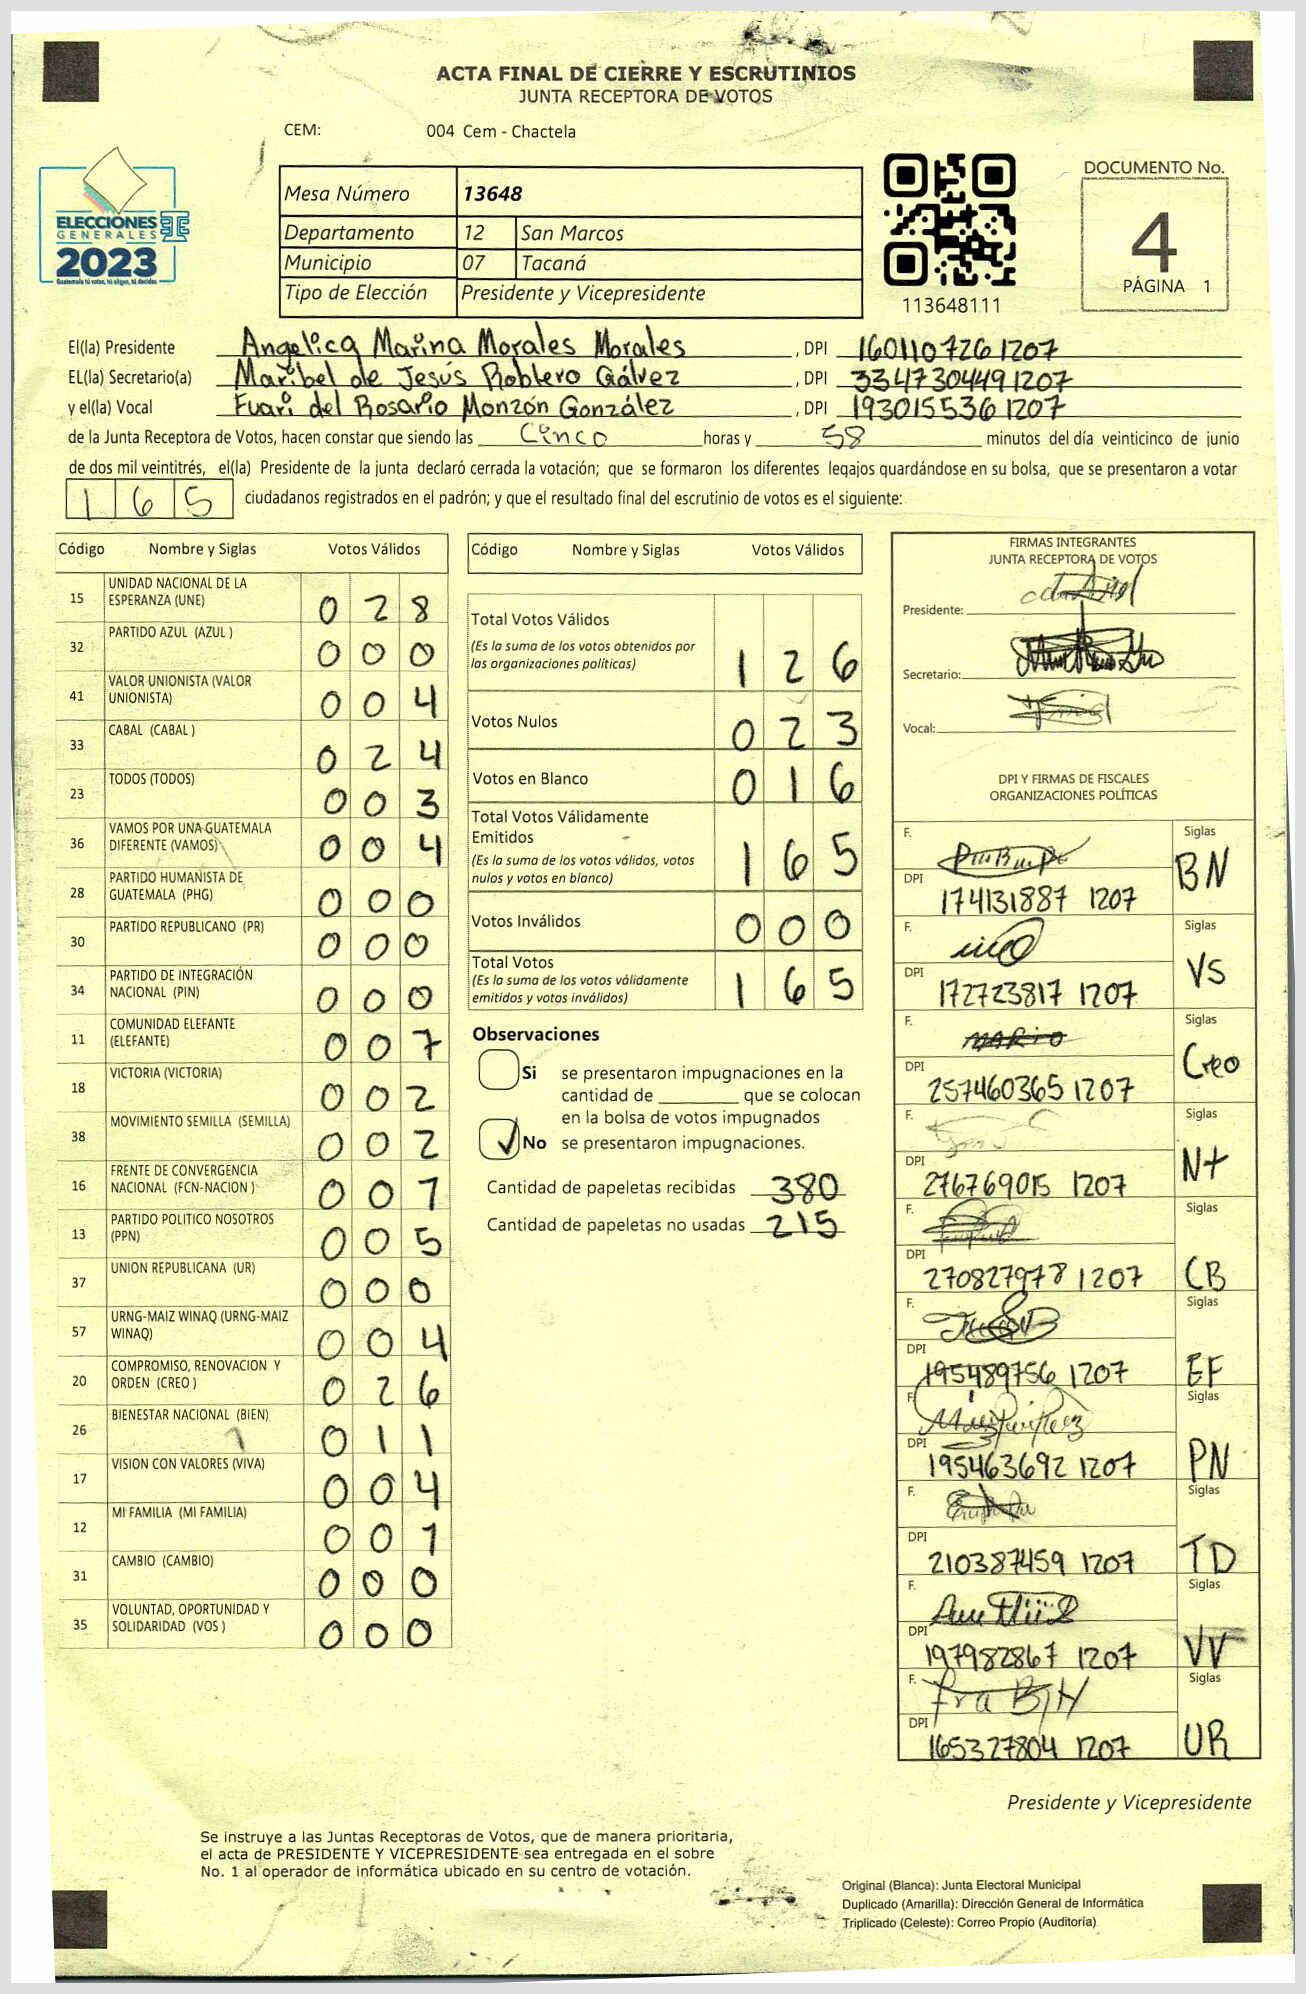 ACTA FINAL DE CIERRE Y ESCRUTINIOS
JUNTA RECEPTORA DE VOTOS
CEM: 004 Cem - Chactela
ELECCIONES
GENERALES
2023
Guatemala tú votas, tú eliges, tú decides
Mesa Número 13648
Departamento 12 San Marcos
Municipio 07 Tacaná
Tipo de Elección Presidente y Vicepresidente
113648111
DOCUMENTO No.
4
PÁGINA 1
El(la) Presidente Angelica Marina Morales Morales , DPI 160110726 1207
EL(la) Secretario(a) Maribel de Jesús Roblero Gálvez , DPI 334730449 1207
y el(la) Vocal Fuari del Rosario Monzón González , DPI 193015536 1207
de la Junta Receptora de Votos, hacen constar que siendo las Cinco horas y 58 minutos del día veinticinco de junio
de dos mil veintitrés, el(la) Presidente de la junta declaró cerrada la votación; que se formaron los diferentes legajos guardándose en su bolsa, que se presentaron a votar
165 ciudadanos registrados en el padrón; y que el resultado final del escrutinio de votos es el siguiente:
Código Nombre y Siglas Votos Válidos
15 UNIDAD NACIONAL DE LA ESPERANZA (UNE) 028
32 PARTIDO AZUL (AZUL ) 000
41 VALOR UNIONISTA (VALOR UNIONISTA) 004
33 CABAL (CABAL ) 024
23 TODOS (TODOS) 003
36 VAMOS POR UNA GUATEMALA DIFERENTE (VAMOS) 004
28 PARTIDO HUMANISTA DE GUATEMALA (PHG) 000
30 PARTIDO REPUBLICANO (PR) 000
34 PARTIDO DE INTEGRACIÓN NACIONAL (PIN) 000
11 COMUNIDAD ELEFANTE (ELEFANTE) 007
18 VICTORIA (VICTORIA) 002
38 MOVIMIENTO SEMILLA (SEMILLA) 002
16 FRENTE DE CONVERGENCIA NACIONAL (FCN-NACION ) 001
13 PARTIDO POLITICO NOSOTROS (PPN) 005
37 UNION REPUBLICANA (UR) 000
57 URNG-MAIZ WINAQ (URNG-MAIZ WINAQ) 004
20 COMPROMISO, RENOVACION Y ORDEN (CREO ) 026
26 BIENESTAR NACIONAL (BIEN) 011
17 VISION CON VALORES (VIVA) 004
12 MI FAMILIA (MI FAMILIA) 001
31 CAMBIO (CAMBIO) 000
35 VOLUNTAD, OPORTUNIDAD Y SOLIDARIDAD (VOS ) 000
Código Nombre y Siglas Votos Válidos
Total Votos Válidos
(Es la suma de los votos obtenidos por
las organizaciones políticas) 126
Votos Nulos 023
Votos en Blanco 016
Total Votos Válidamente
Emitidos
(Es la suma de los votos válidos, votos
nulos y votos en blanco) 165
Votos Inválidos 000
Total Votos
(Es la suma de los votos válidamente
emitidos y votos inválidos) 165
Observaciones
Si se presentaron impugnaciones en la
cantidad de ________ que se colocan
en la bolsa de votos impugnados
No se presentaron impugnaciones.
Cantidad de papeletas recibidas 380
Cantidad de papeletas no usadas 215
FIRMAS INTEGRANTES
JUNTA RECEPTORA DE VOTOS
Presidente:
Secretario:
Vocal:
DPI Y FIRMAS DE FISCALES
ORGANIZACIONES POLÍTICAS
F. Siglas
DPI 174131887 1207 BN
F. Siglas
DPI 172723817 1207 VS
F. Siglas
DPI 257460365 1207 Creo
F. Siglas
DPI 276769015 1207 N+
F. Siglas
DPI 270827978 1207 CB
F. Siglas
DPI 195489756 1207 EF
F. Siglas
DPI 195463692 1207 PN
F. Siglas
DPI 210387459 1207 TD
F. Siglas
DPI 197982867 1207 VV
F. Siglas
DPI 165327804 1207 UR
Presidente y Vicepresidente
Se instruye a las Juntas Receptoras de Votos, que de manera prioritaria,
el acta de PRESIDENTE Y VICEPRESIDENTE sea entregada en el sobre
No. 1 al operador de informática ubicado en su centro de votación.
Original (Blanca): Junta Electoral Municipal
Duplicado (Amarilla): Dirección General de Informática
Triplicado (Celeste): Correo Propio (Auditoría)